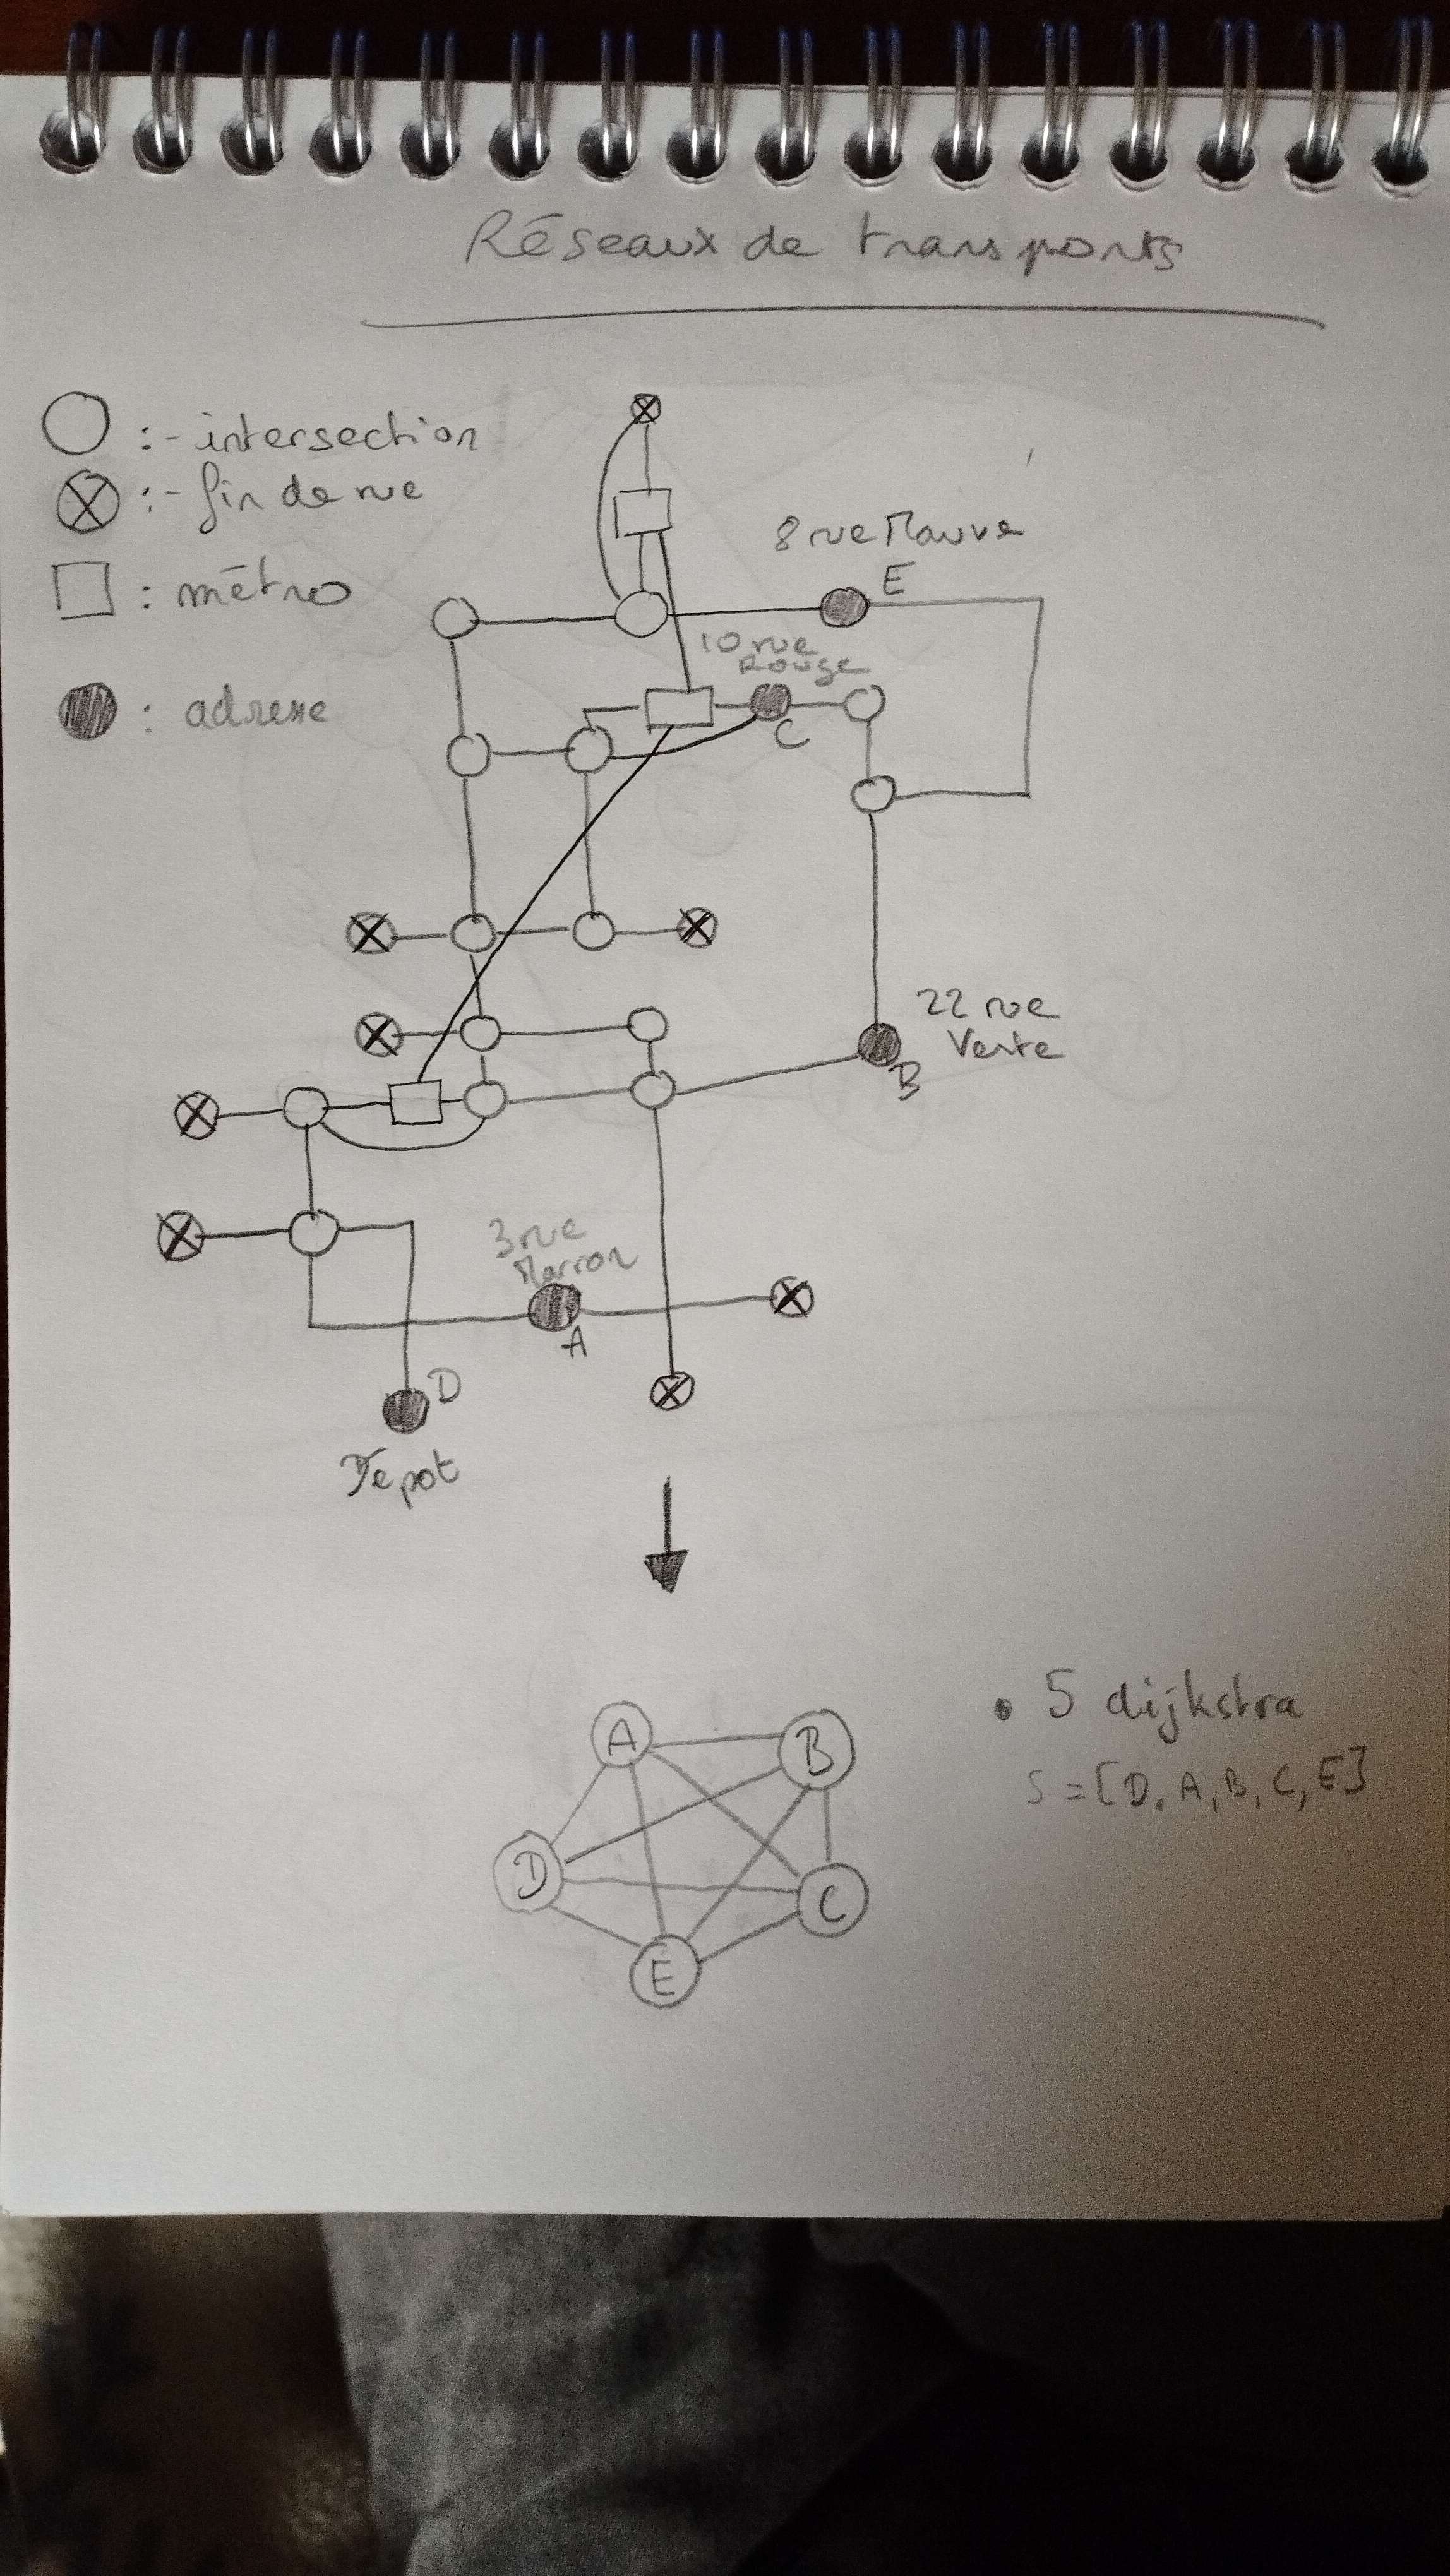 Réseaux de transports
: - intersection
: - fin de rue
: métro
: adresse
8 rue Mauve
E
10 rue
Rouge
C
22 rue
Verte
B
3 rue
Marron
A
D
Dépot
A
B
D
C
E
• 5 dijkstra
S = [D, A, B, C, E]